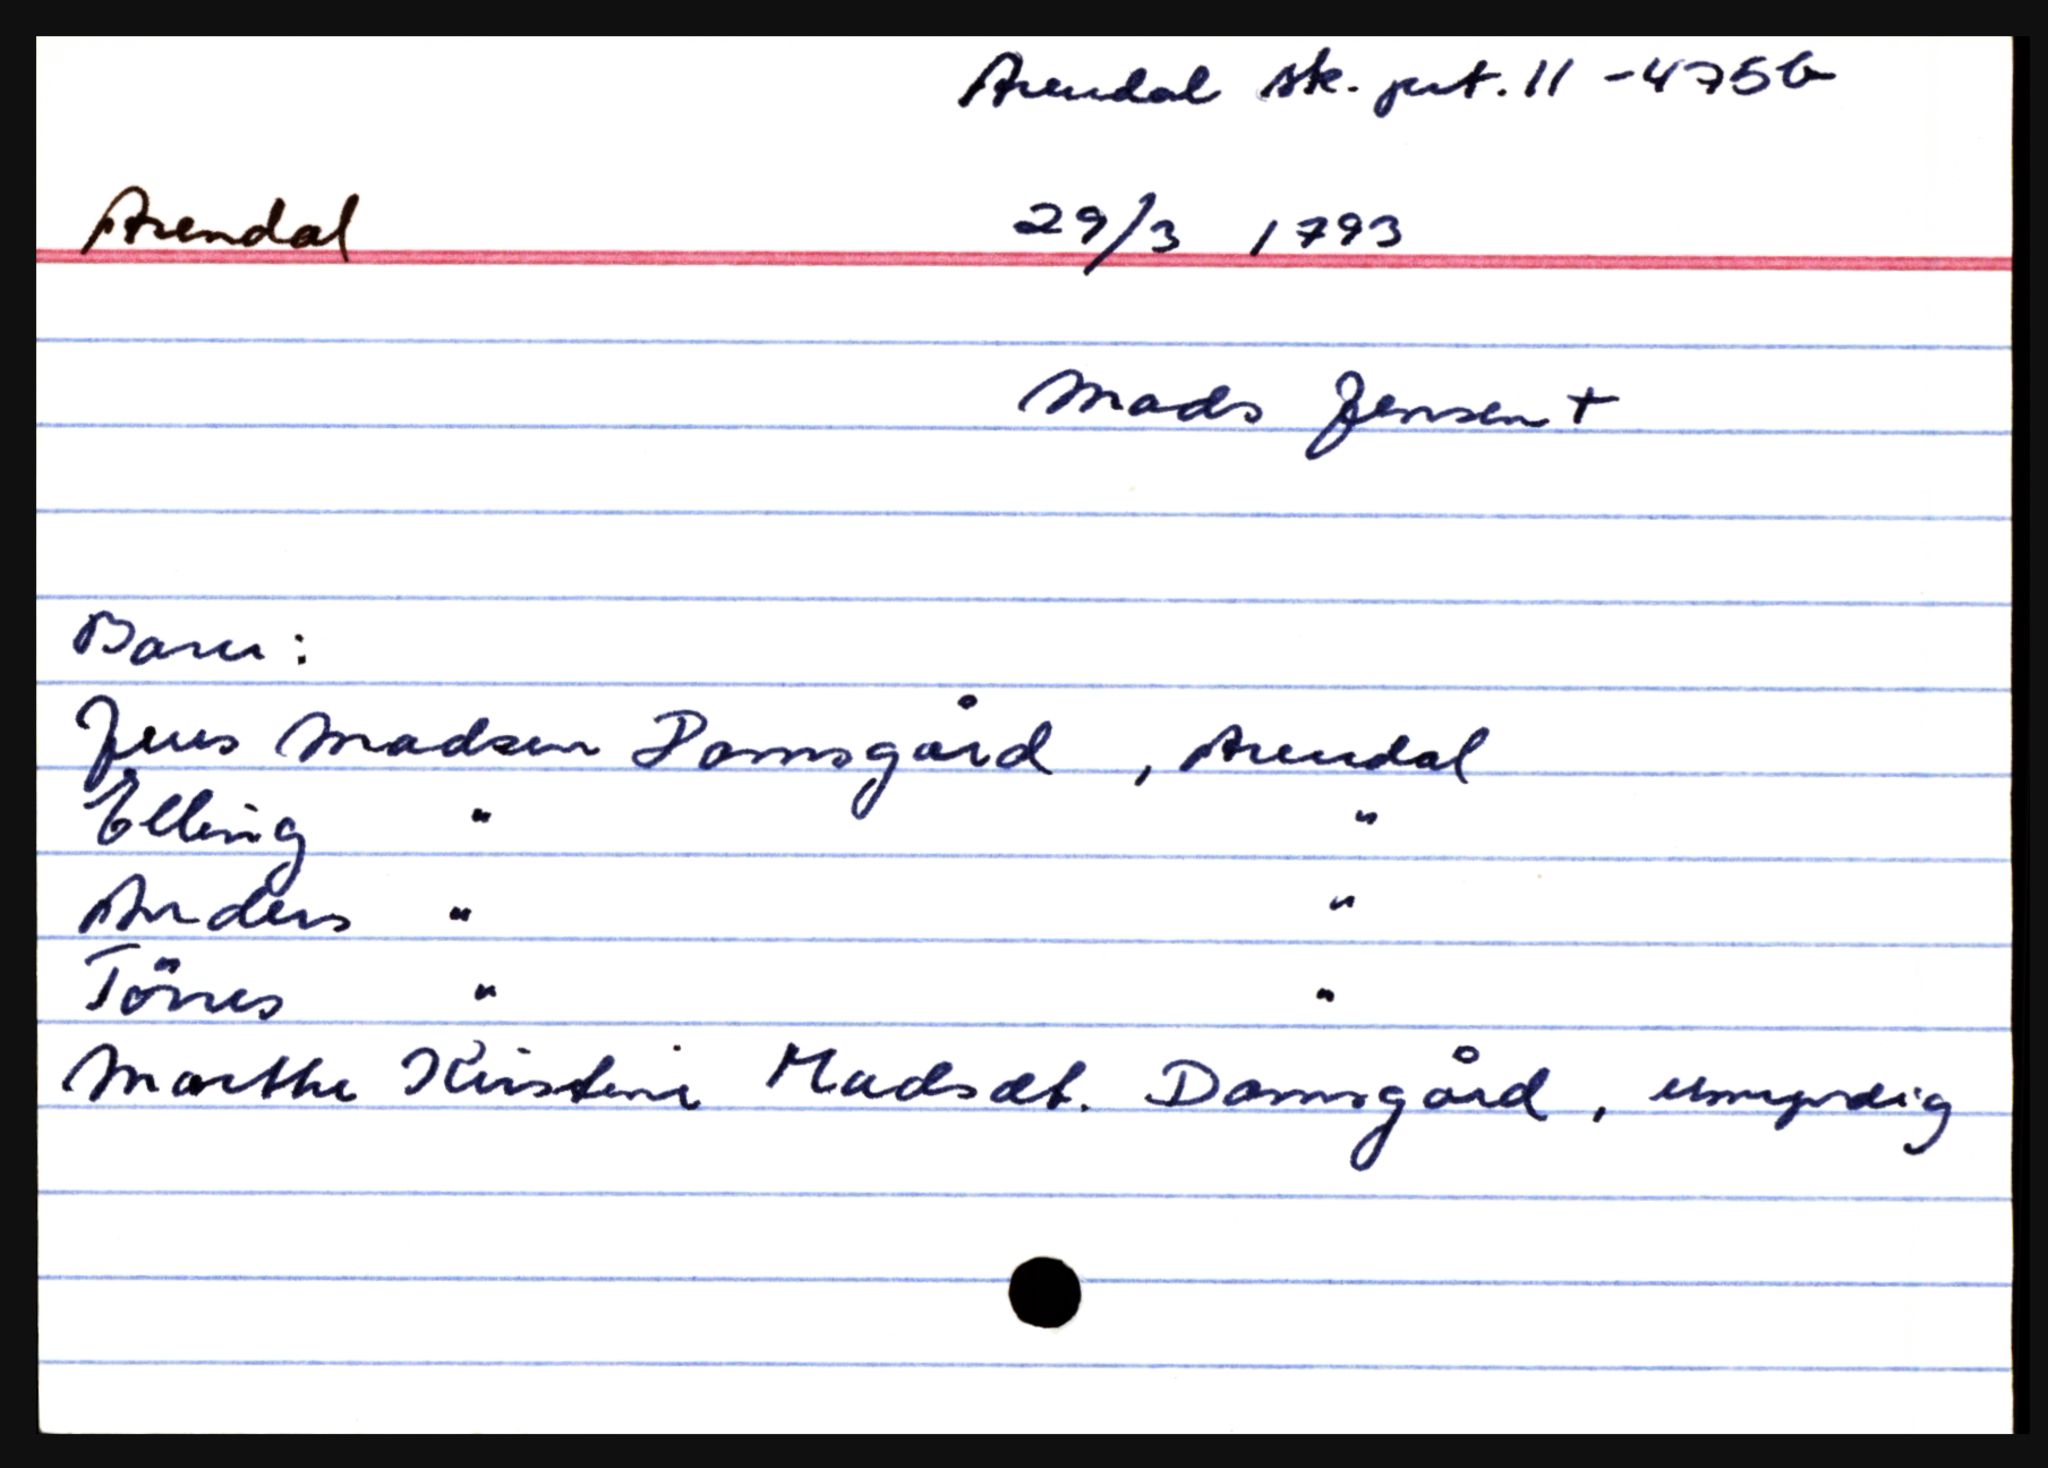 Arendal sk. prt. 11 - 475b
Arendal 29/3 1793
Mads Jensen +
Barn :
Jens Madsen Damsgård , Arendal
Elling " "
Anders " "
Tönnes " "
Marthe Kirstine Madsdt. Damsgård , umyndig